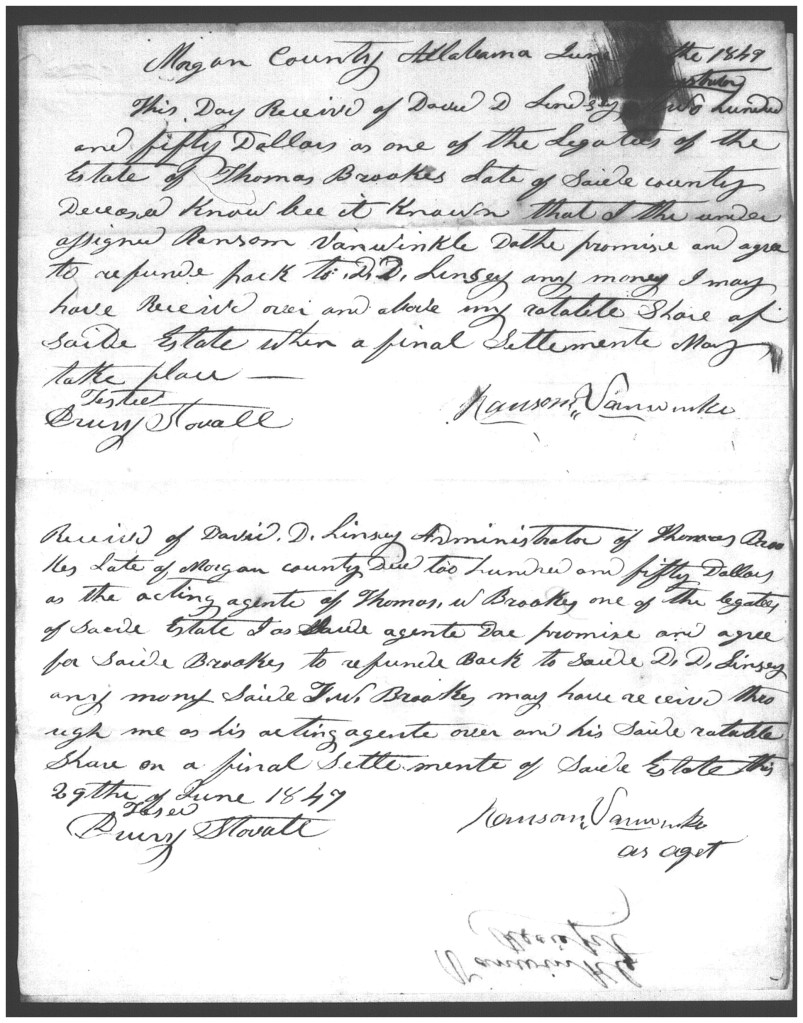 Morgan County Allabama June the 1849
This Day Receivd of David D Lindsey two hundred
and fifty Dollars as one of the Legatees of the
Estate of Thomas Brookes Late of Saide county
Deceased Know bee it Known that I the under
assigned Ransom Vanwinkle Dothe promise and agree
to refunde back to D. D. Linsey any money I may
have Receivd over and above my ratable Share of
Saide Estate when a final Settlemente May
take place —
Testee
Drury Stovall
Ransom Vanwinkle
Receivd of David. D. Linsey Administrator of Thomas Broo
kes Late of Morgan county Decd too hundred and fifty Dollars
as the acting agente of Thomas, W Brookes one of the legatees
of Saide Estate I as Saide agente Doe promise and agree
for Saide Brookes to refunde Back to Saide D. D. Linsey
any mony Saide T. W. Brookes may have receivd thro
ugh me as his acting agente over and his Saide ratable
Share on a final Settlemente of Saide Estate this
29the of June 1849
Testee
Drury Stovall
Ransom Vanwinkle
as aget
Vanwinkle
Receipt